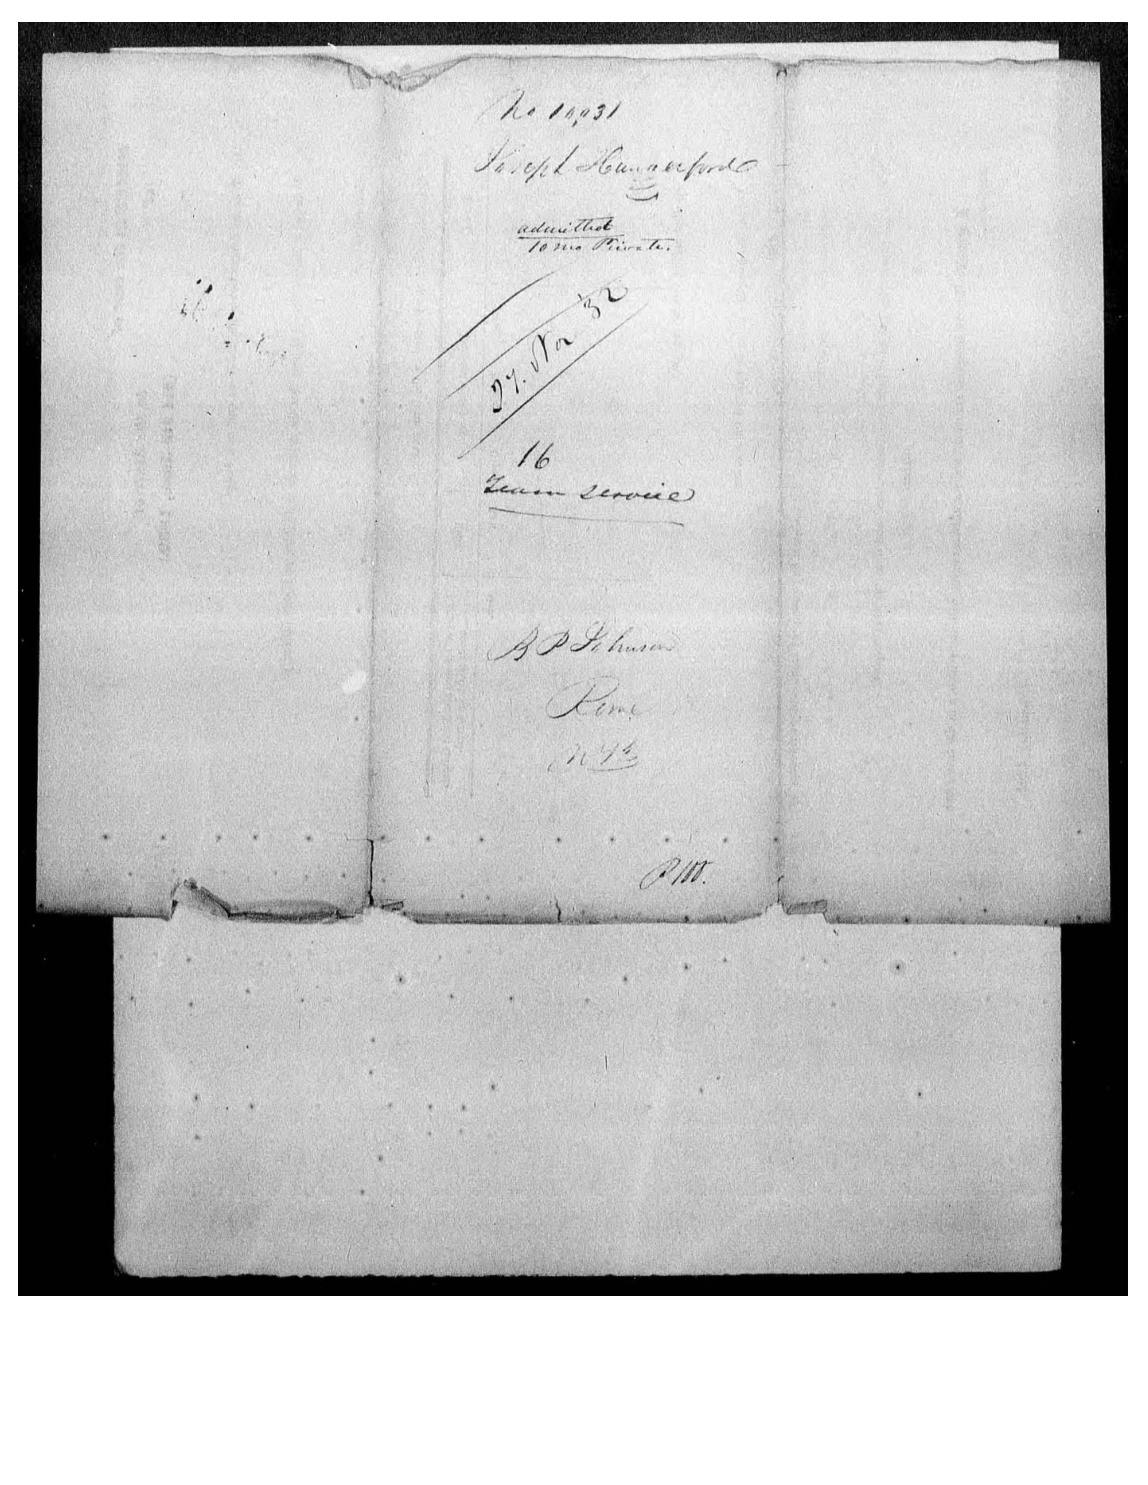 No 10,031
Joseph Hunnerford
admitted
10 mo Private.
27. Nov 32
16
Team service
B P Johnson
Rome
N Yk
P 100.